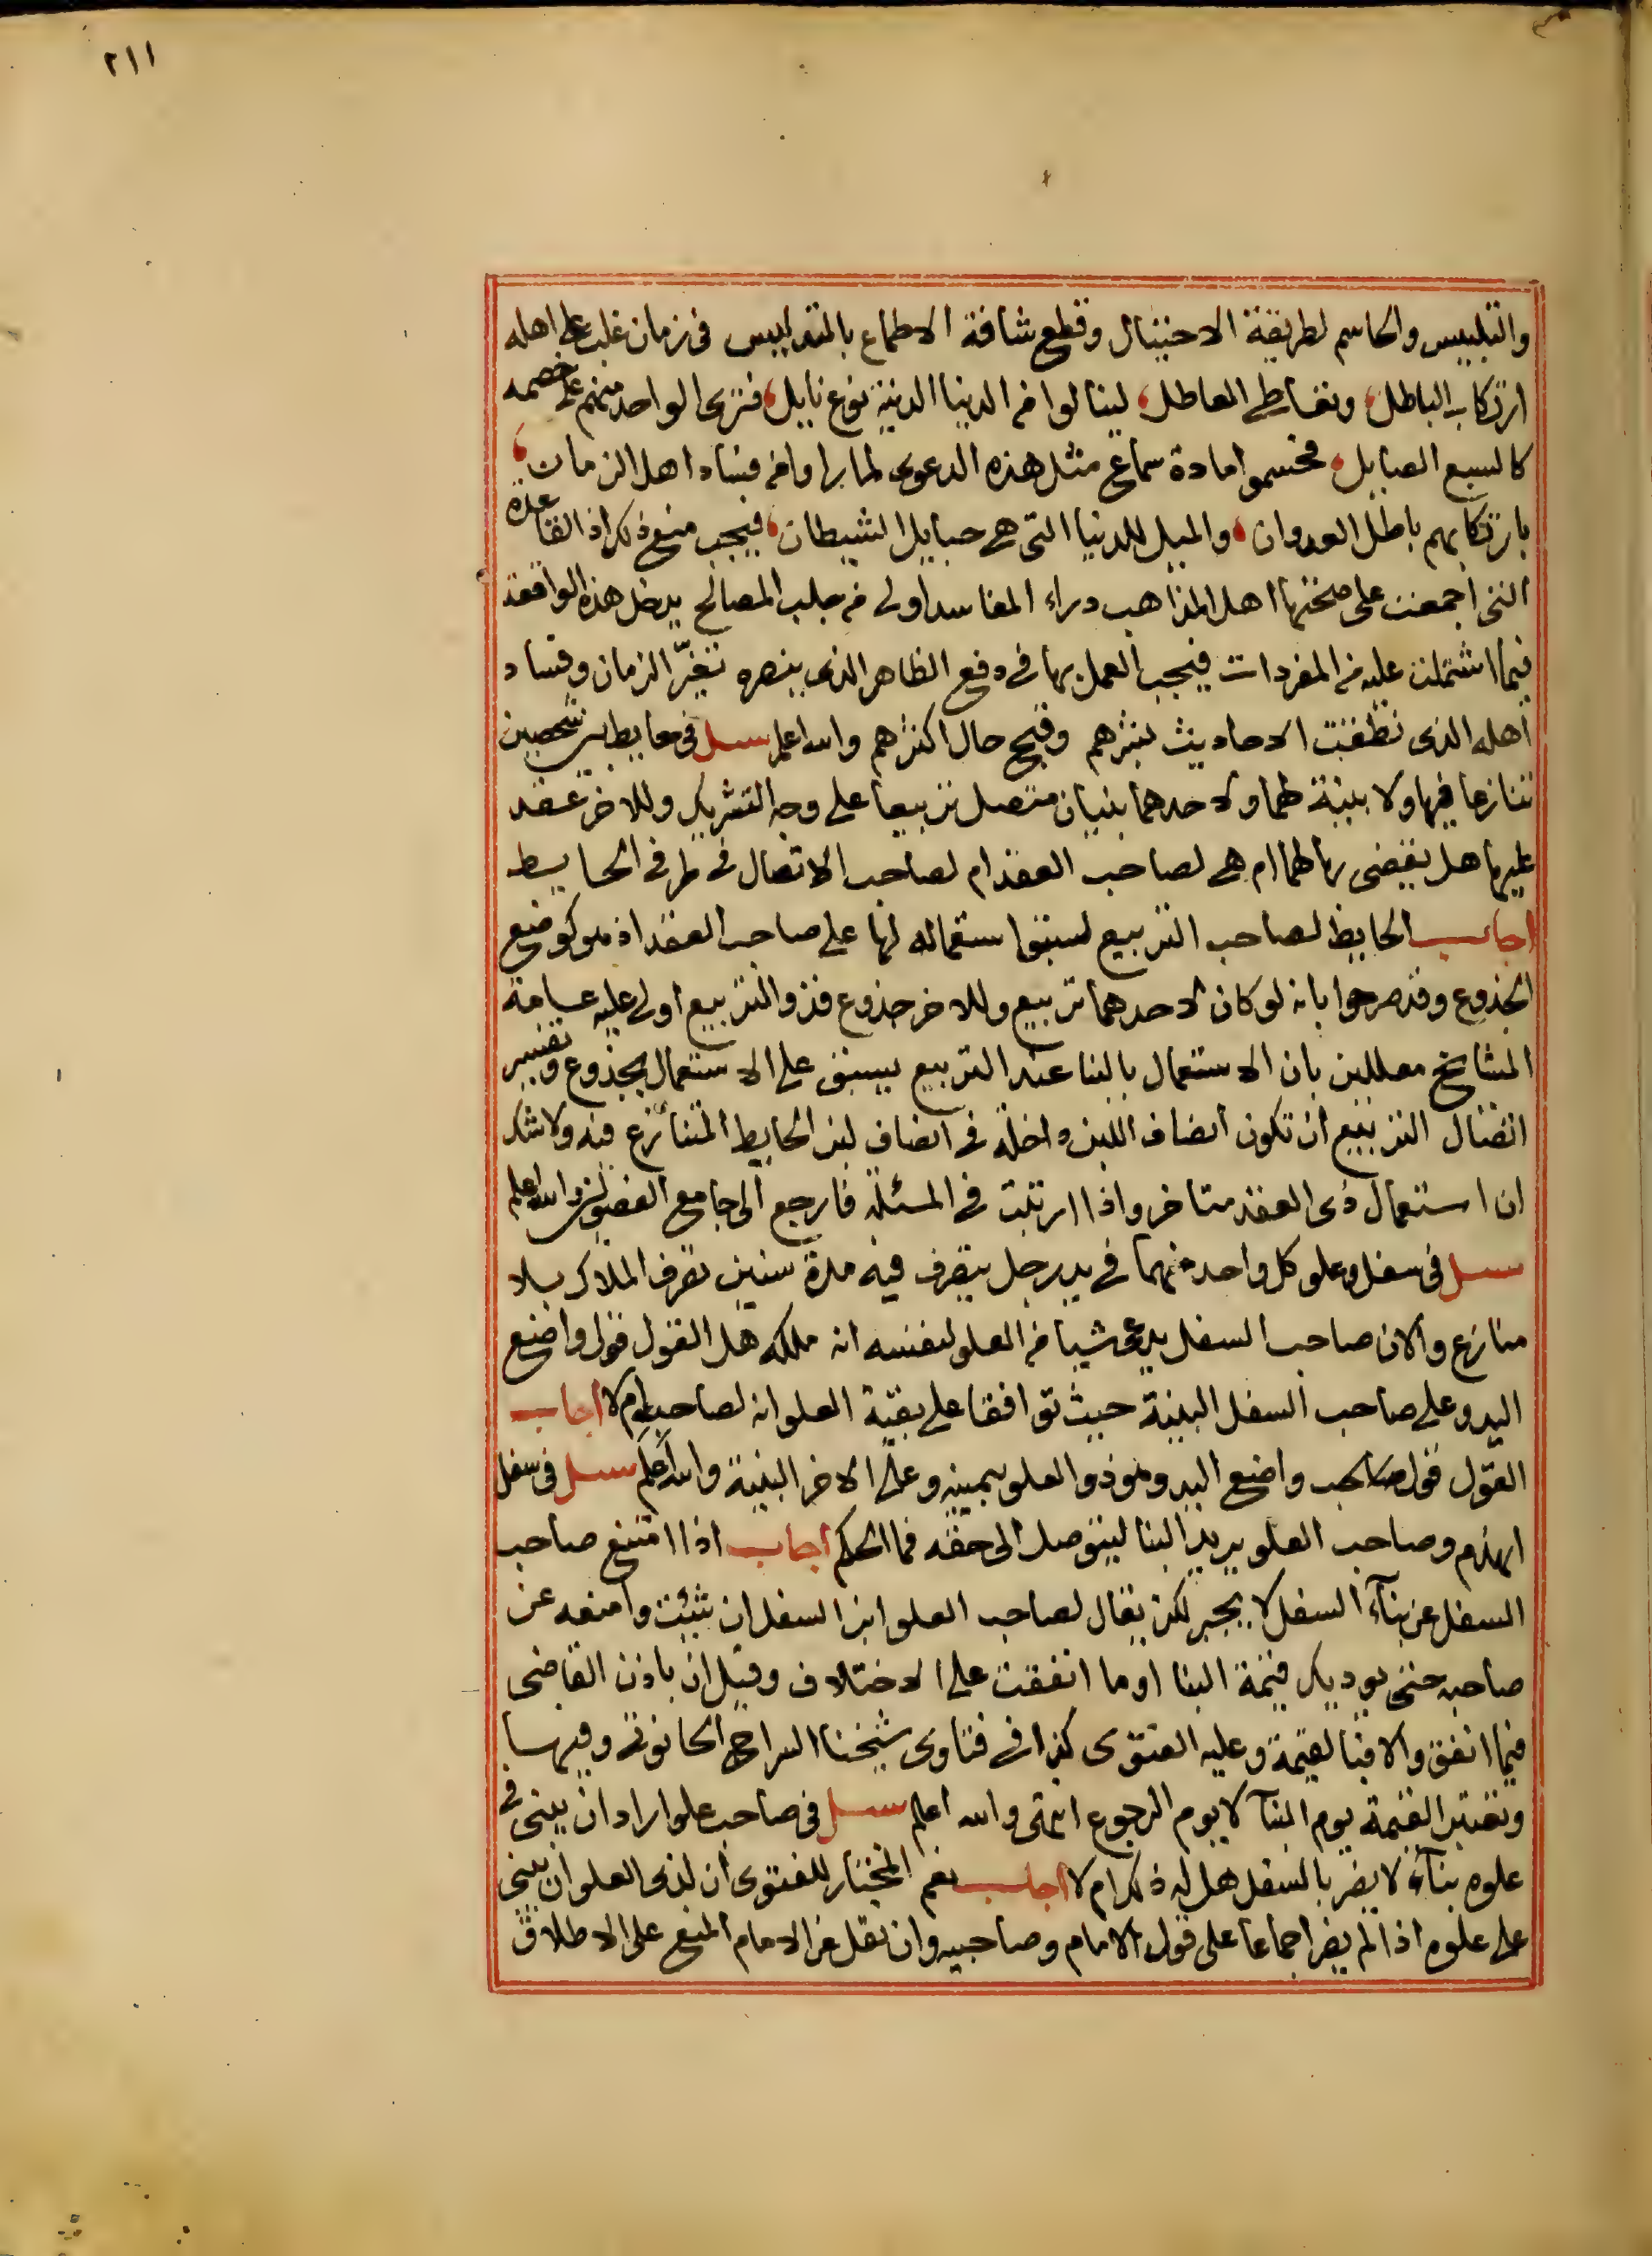 ٢١١
والتلبيس والحاسم لطريقة الاحتيال وقطع شافة الاطماع بالتدابيس فى زمان غلب على اهله
ارتكاب الباطل، وتعاطى العاطل، لينالوا من الدنيا الدنية نوع نايل، فترى الواحد منهم على خصمه
كالسبع الصايل، فحسموا مادة سماع مثل هذه الدعوى لما راوا من فساد اهل الزمان،
بارتكابهم باطل العدوان، والميل للدنيا التى هى حبايل الشيطان، فيجب منع ذلك اذ القاعدة
التى اجمعت على صحتها اهل المذاهب دراء المفاسد اولى من جلب المصالح يدخل هذه الواقعة
فيما اشتملت عليه من المفردات فيجب العمل بها فى دفع الظاهر الذى ينصره تغيّر الزمان وفساد
اهله الذى نطقت الاحاديث بشرهم وقبح حال اكثرهم والله اعلم سـل فى حايط بين شخصين
تنازعا فيها ولا بينة لهما ولاحدهما بنيان متصل تربيعا على وجه التشريك وللاخر عقد
عليها هل يقضى بها لهما ام هى لصاحب العقد ام لصاحب الاتصال فى طرفى الحايط
اجاب الحايط لصاحب التربيع لسبق استعماله لها على صاحب العقد اذ هو كوضع
الجذوع وقد صرحوا بانه لو كان لاحدهما تربيع وللاخر جذوع فذو التربيع اولى عليه عامة
المشايخ معللين بان الاستعمال بالبنا عند التربيع يسبق على الاستعمال بجذوع وتفسير
اتصال التربيع ان تكون انصاف اللبن داخلة فى انصاف لبن الحايط المتنازع فيه ولا شك
ان استعمال ذى العقد متاخر واذا ارتبت فى المسئلة فارجع الى جامع الفصولين والله اعلم
سـل فى سفل وعلو كل واحد منهما فى يد رجل يتصرف فيه مدة سنين تصرف الملاك بلا
منازع والان صاحب السفل يدعى شيا من العلو لنفسه انه ملكه هل القول قول واضع
اليد وعلى صاحب السفل البينة حيث توافقا على بقية العلو انه لصاحبه ام لا اجاب
القول قول صاحب واضع اليد وهو ذو العلو بيمينه وعلى الاخر البينة والله اعلم سـل فى سفل
انهدم وصاحب العلو يريد البنا ليتوصل الى حقه فما الحكم اجاب اذا امتنع صاحب
السفل عن بنآء السفل لا يجبر لكن يقال لصاحب العلو ابن السفل ان شئت وامنعه عن
صاحبه حتى يوديك قيمة البنا او ما انفقت على الاختلاف وقيل ان باذن القاضى
فيما انفق والا فبالقيمة وعليه الفتوى كذا فى فتاوى شيخنا السراج الحانوتى وفيها
وتعتبر القيمة يوم البنآ لا يوم الرجوع انتهى والله اعلم سـل فى صاحب علو اراد ان يبنى فى
علوه بنآء لا يضر بالسفل هل له ذلك ام لا اجاب نعم المختار للفتوى ان لذى العلو ان يبنى
على علوه اذا لم يضر اجماعا على قول الامام وصاحبيه وان نقل عن الامام المنع على الاطلاق